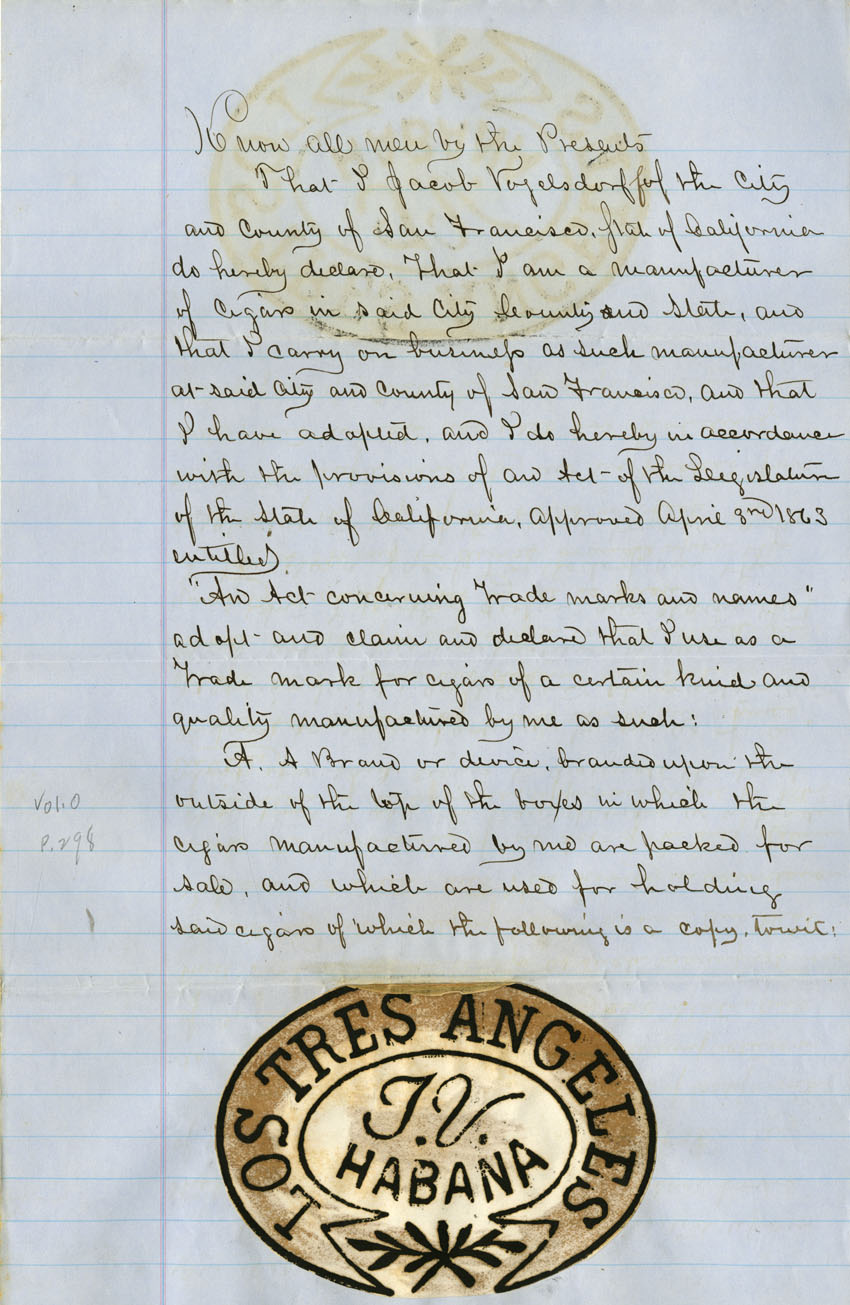 Know all men by the Presents
That I Jacob Vogelsdorff of the City
and County of San Francisco, State of California
do hereby declare, That I am a manufacturer
of Cigars in said City County and State, and
that I carry on business as such manufacturer
at said City and County of San Francisco, and that
I have adopted, and I do hereby in accordance
with the provisions of an Act of the Legislature
of the State of California, approved April 3rd 1863
entitled
"An Act concerning Trade marks and names"
adopt and claim and declare that I use as a
Trade mark for cigars of a certain kind and
quality manufactured by me as such:
A. A Brand or device, branded upon the
outside of the top of the boxes in which the
cigars manufactured by me are packed for
sale, and which are used for holding
said cigars of which the following is a copy, towit:
Vol. O
P. 298
LOS TRES ANGELES
J.V.
HABANA